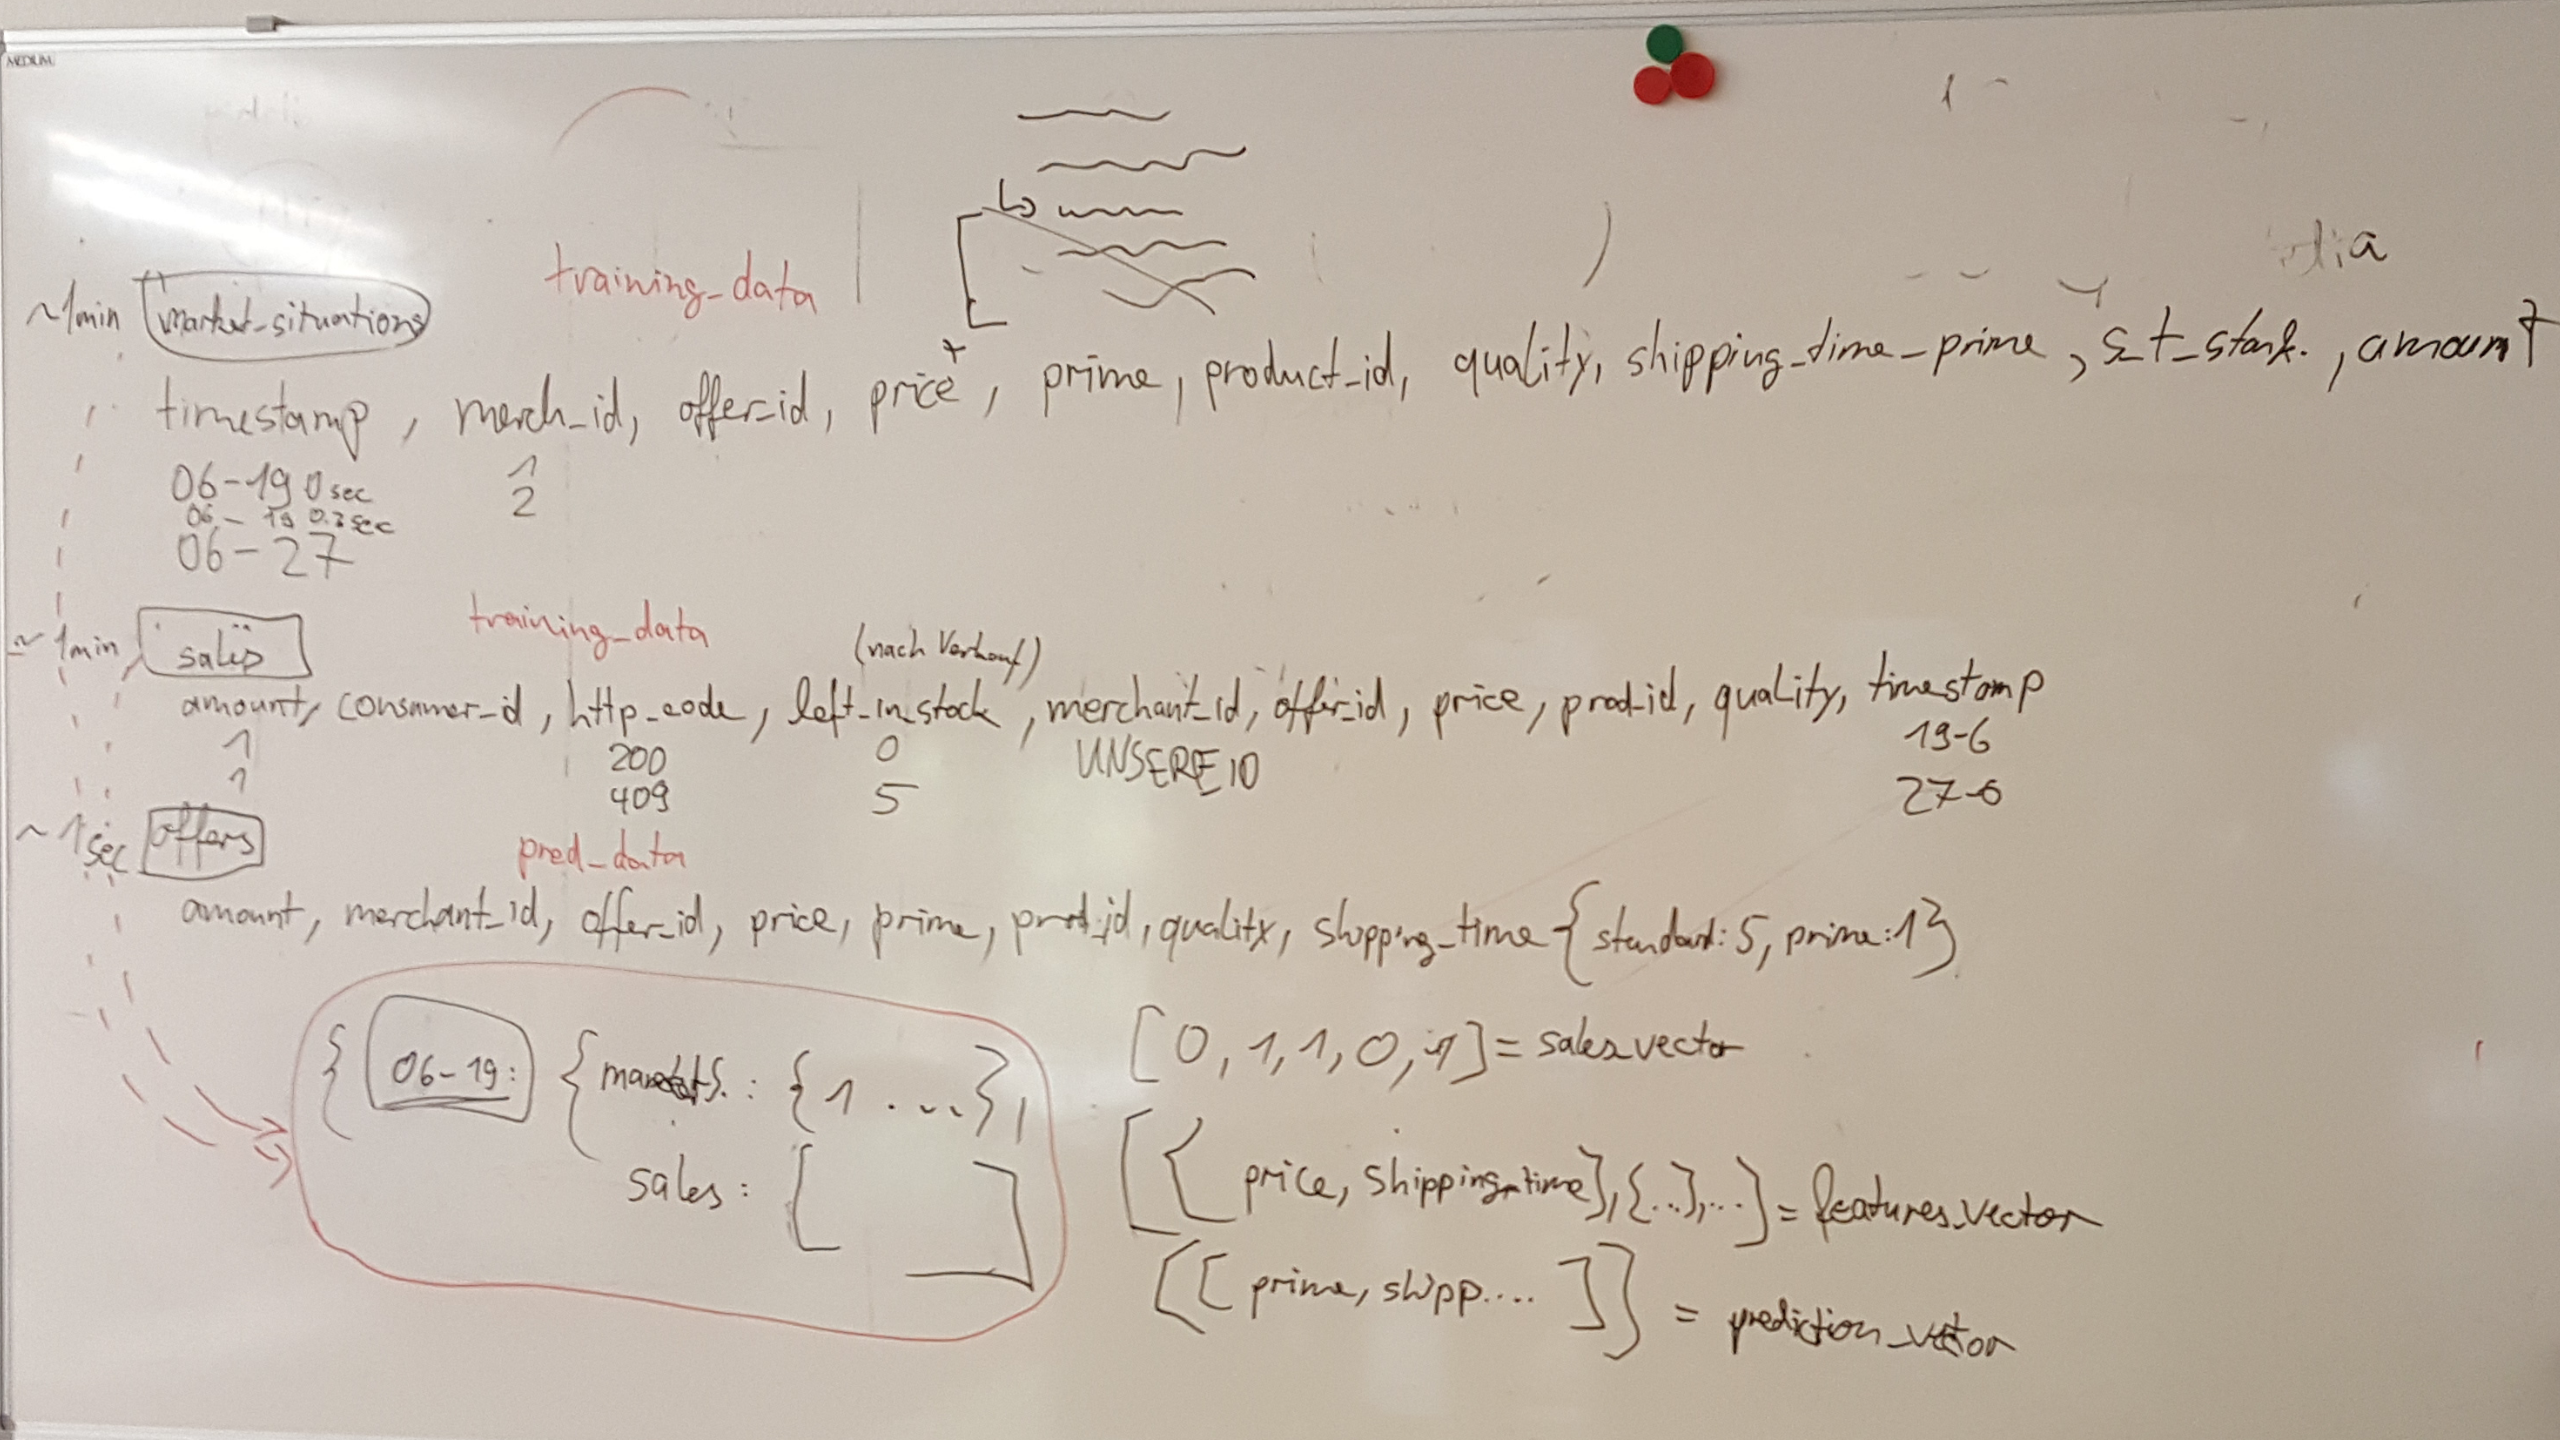 MEDIUM
dia
training_data
~1min market-situations
timestamp, merch_id, offer_id, price, prime, product_id, quality, shipping_time_prime, s_t_stand., amount
06-19 0 sec 1
06-19 0.2 sec 2
06-27
training_data
~1min sales (nach Verkauf)
amount, consumer_id, http_code, left_in_stock, merchant_id, offer_id, price, prod_id, quality, timestamp
1 200 0 UNSERE ID 19-6
1 409 5 27-6
~1sec offers pred_data
amount, merchant_id, offer_id, price, prime, prod_id, quality, shipping_time {standard: 5, prime: 1}
{ 06-19: { markets.: {1 ...},
sales: [ ]
[0, 1, 1, 0, 1] = sales_vector
[{ price, shipping_time}, {...}, ...] = features_vector
[[ prime, shipp.... ]] = prediction_vector